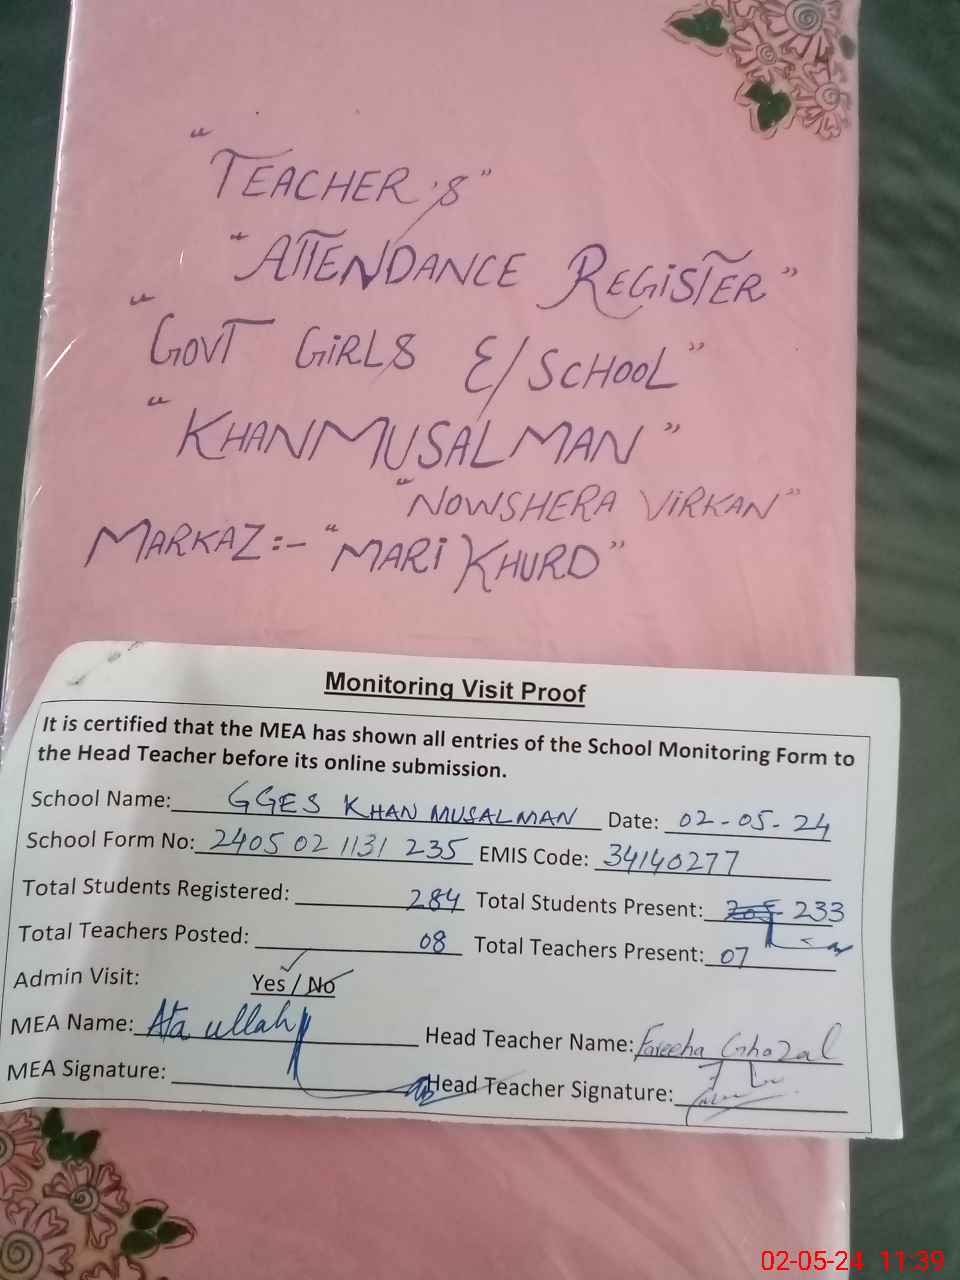 "TEACHER'S"
"ATTENDANCE REGISTER"
"GOVT GIRLS E/SCHOOL"
"KHANMUSALMAN"
"NOWSHERA VIRKAN"
MARKAZ:- "MARI KHURD"
Monitoring Visit Proof
It is certified that the MEA has shown all entries of the School Monitoring Form to
the Head Teacher before its online submission.
School Name: GGES KHAN MUSALMAN Date: 02-05-24
School Form No: 2405 02 1131 235 EMIS Code: 34140277
Total Students Registered: 284 Total Students Present: 233
Total Teachers Posted: 08 Total Teachers Present: 07
Admin Visit: Yes / No
MEA Name: Ata ullah Head Teacher Name: Fareeha Ghozal
MEA Signature: Head Teacher Signature:
02-05-24 11:39